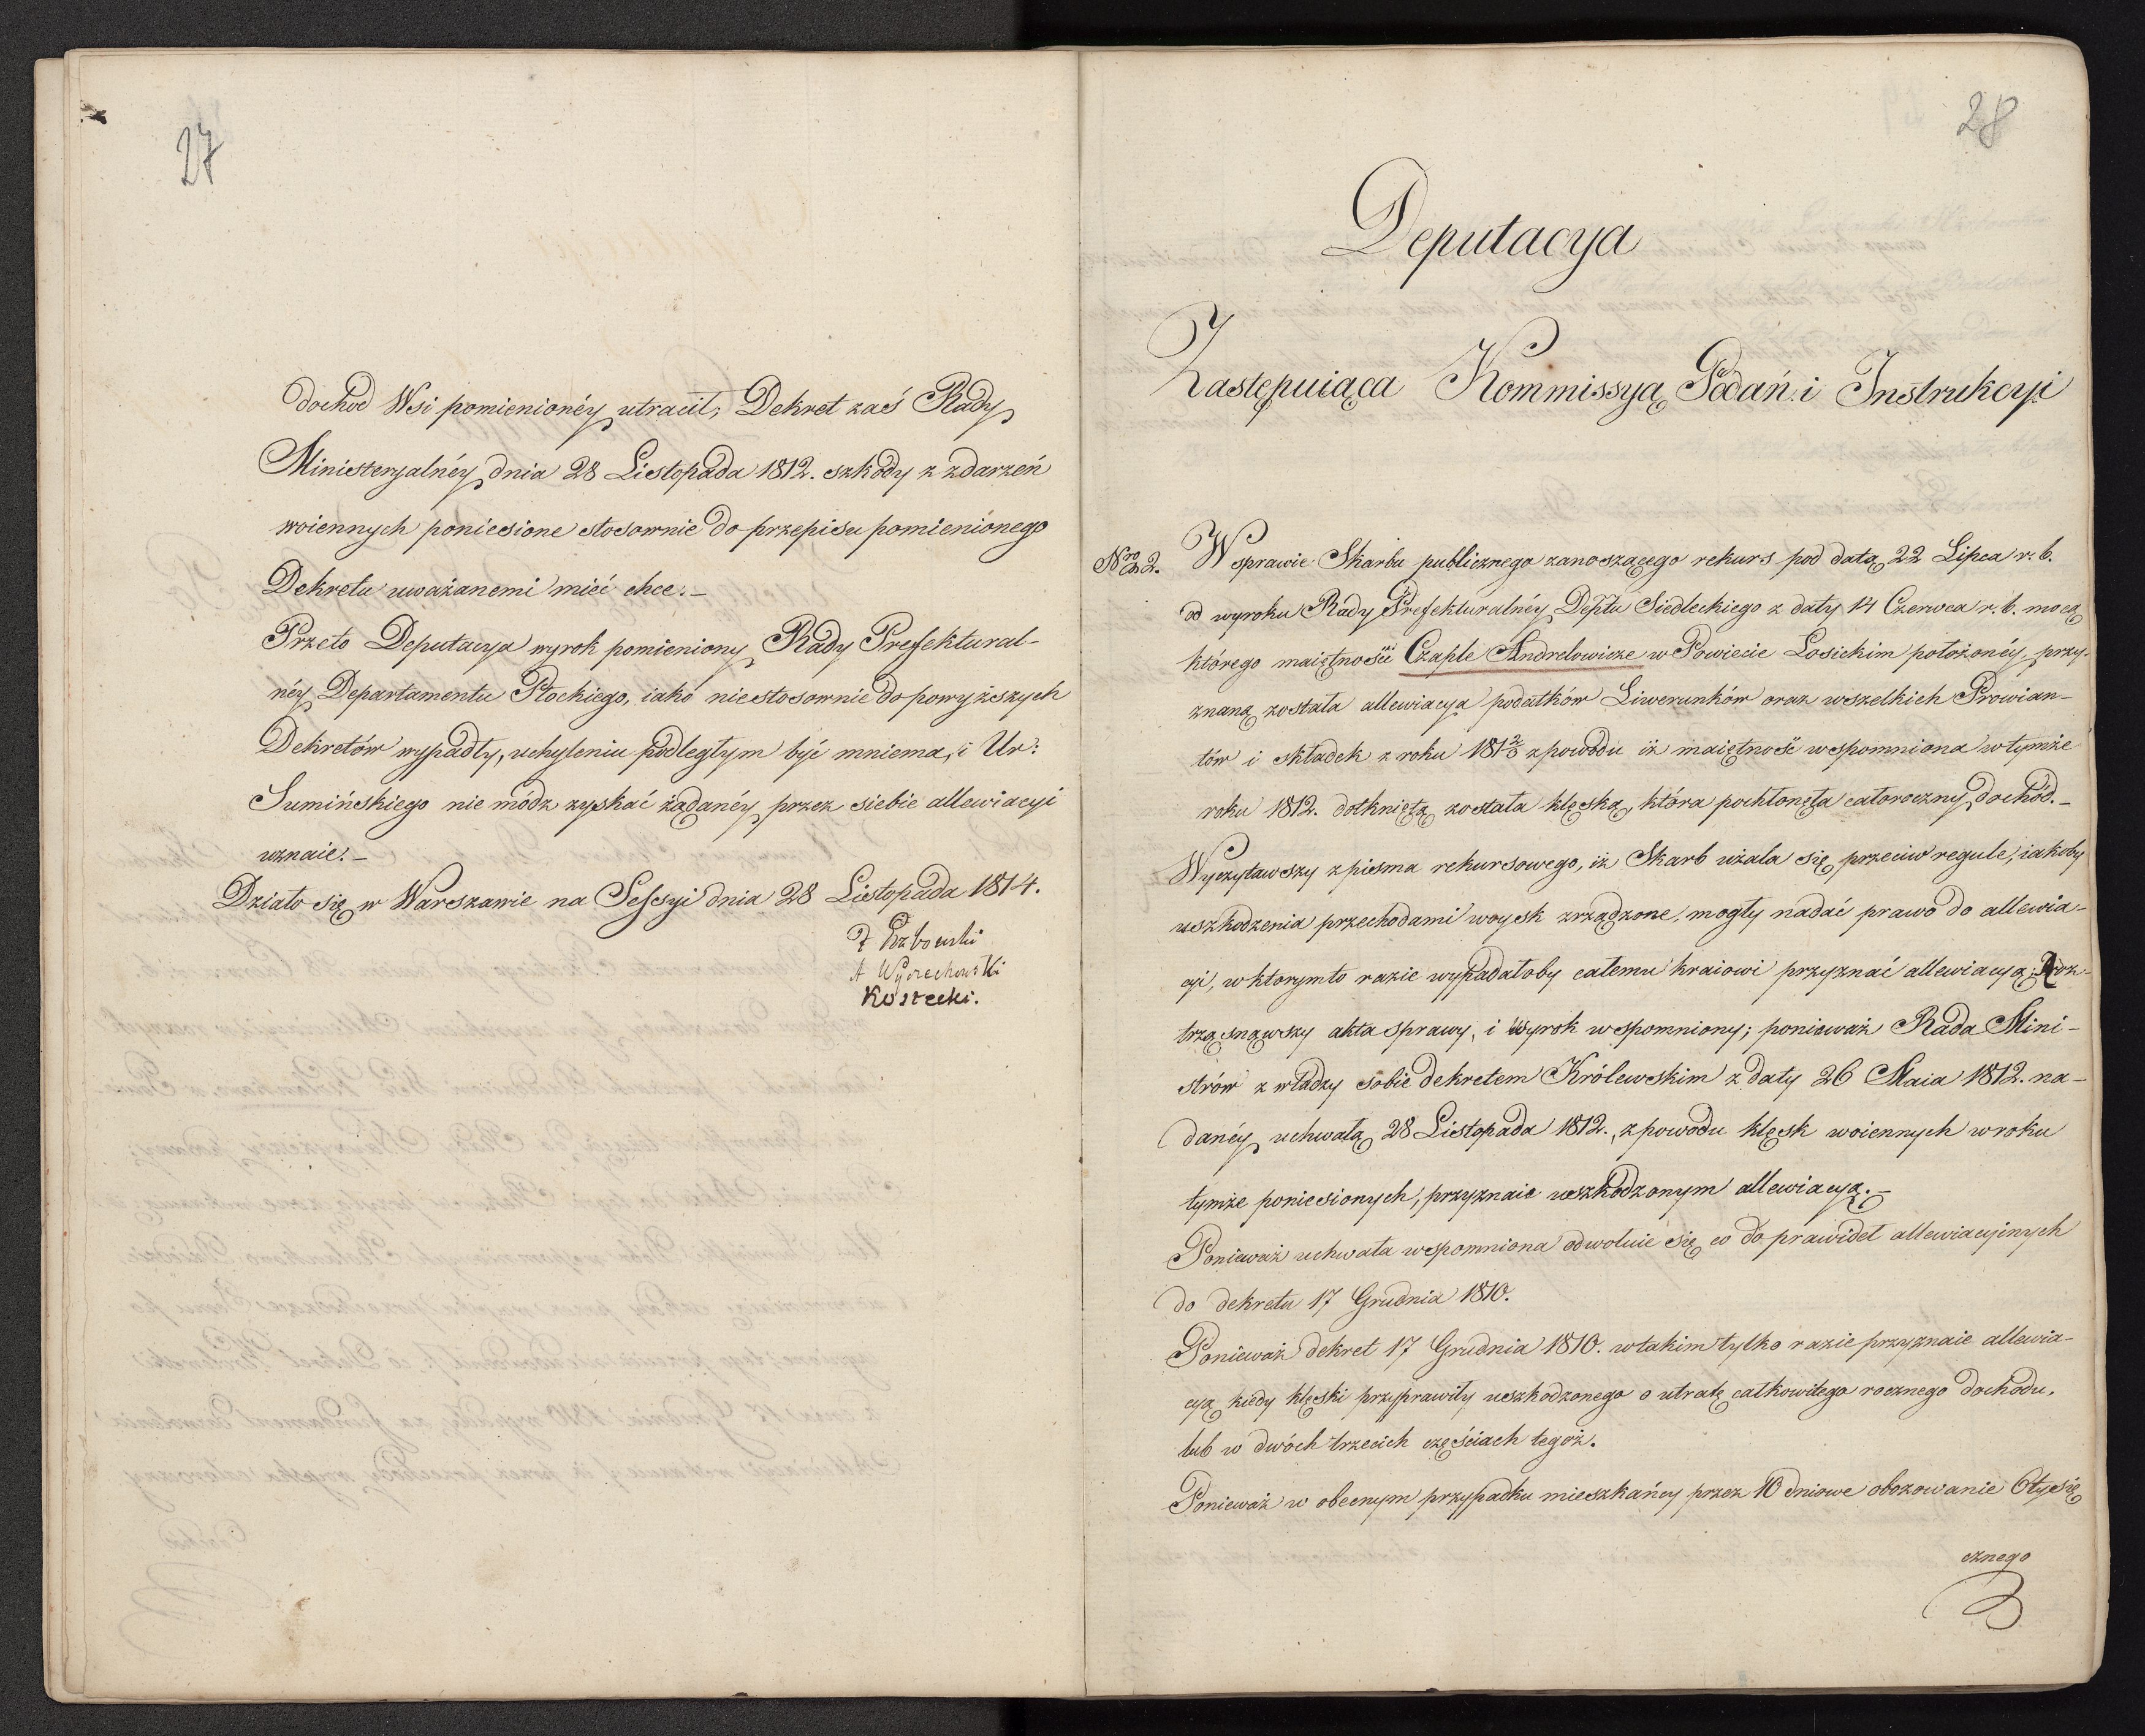 27
dochod Wsi pomienionéy utracił; Dekret zaś Rady
Ministeryalnéy dnia 28 Listopada 1812. szkody z zdarzeń
woiennych poniesione stosownie do przepisu pomienionego
Dekretu uważanemi mieć chce.–
Przeto Deputacya wyrok pomieniony Rady Prefektural-
néy Departamentu Płockiego, iako niestosownie do powyższych
Dekretów wypadły, uchyleniu podległym być mniema, i Ur:
Sumińskiego nie módz zyskać żądanéy przez siebie allewiacyi
uznaie.–
Działo się w Warszawie na Sessyi dnia 28 Listopada 1814.
A Wyczechowski
Kostecki.
28
Deputacya
Zastępuiąca Kommissyą Podań i Instrukcyi
Nro 2. W sprawie Skarbu publicznego zanoszącego rekurs pod datą 22 Lipca r. b.
od wyroku Rady Prefekturalnéy Deptu Siedleckiego z daty 14 Czerwca r. b. mocą
którego maiętności Czaple Andrelowicze w Powiecie Łosickim położonéy przy-
znaną została allewiacya podatków Liwerunków oraz wszelkich Prowian-
tów i składek z roku 1812/3 z powodu iż maiętność wspomniona w tymże
roku 1812. dotkniętą została klęską, która pochłonęła całoroczny dochód.–
Wyczytawszy z pisma rekursowego, iż Skarb użala się przeciw regule, iakoby
uszkodzenia przechodami woysk zrządzone, mogły nadać prawo do allewia-
cyi, w ktorymto razie wypadałoby całemu kraiowi przyznać allewiacyą; Roz-
trząsnąwszy akta sprawy, i wyrok wspomniony; ponieważ Rada Mini-
strów z władzy sobie dekretem Królewskim z daty 26 Maia 1812. na-
danéy uchwałą 28 Listopada 1812., z powodu klęsk woiennych w roku
tymże poniesionych, przyznaie uszkodzonym allewiacyą.–
Ponieważ uchwała wspomniona odwołuie się co do prawideł allewiacyinych
do dekretu 17 Grudnia 1810.
Ponieważ dekret 17 Grudnia 1810. w takim tylko razie przyznaie allewia-
cyą kiedy klęski przyprawiły uszkodzonego o utratę całkowitego rocznego dochodu,
lub w dwóch trzecich częściach tegoż.
Ponieważ w obecnym przypadku mieszkańcy przez 10 dniowe obozowanie 6tysię
cznego